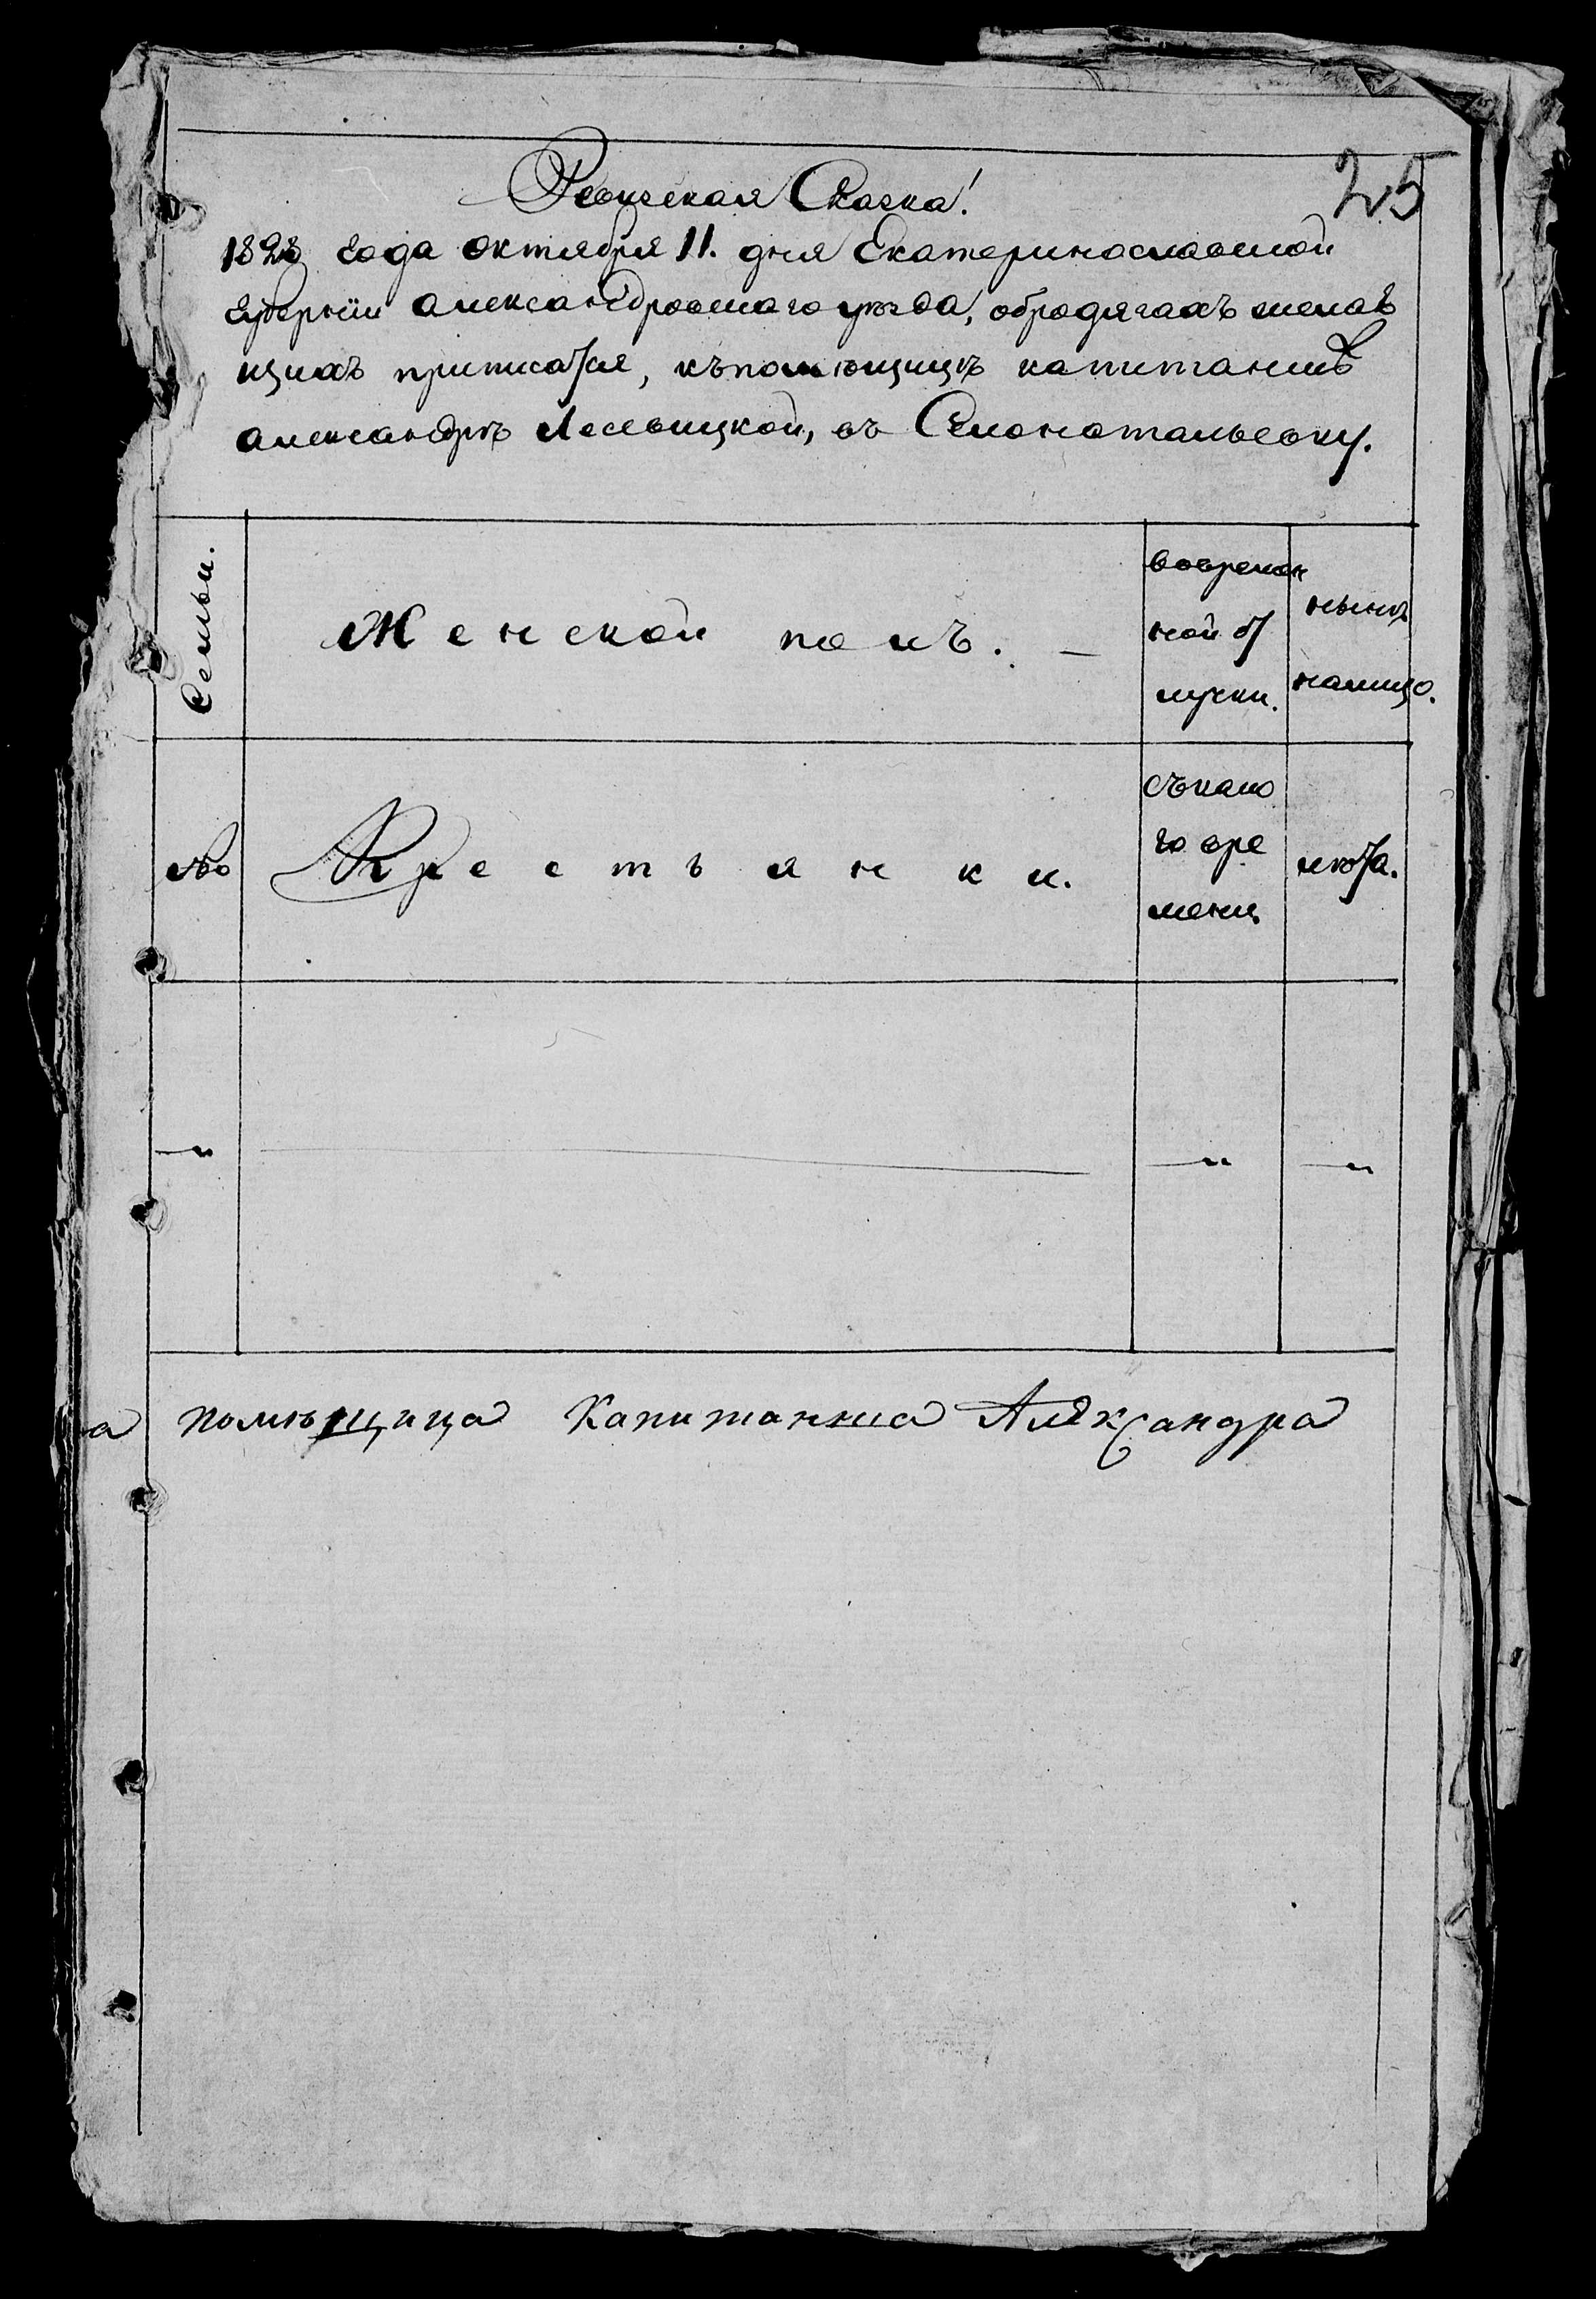 25
Ревизская Сказка!
1828 года октября 11. дня Екатеринославской
губернии александровскаго уезда, обродягахъ желаю
щихъ приписатся, къпомющицѣ капитаншѣ
александрѣ Лесевицкой, въ Селонотальевку.
Семьи.
Женской полъ. —
вовремен
ной от
лучки.
нынѣ
налицо.
№
Крестьянки.
съкако
го вре
мени
лѣта.
—„
—„
—„
а помѣщица Капитанша Александра